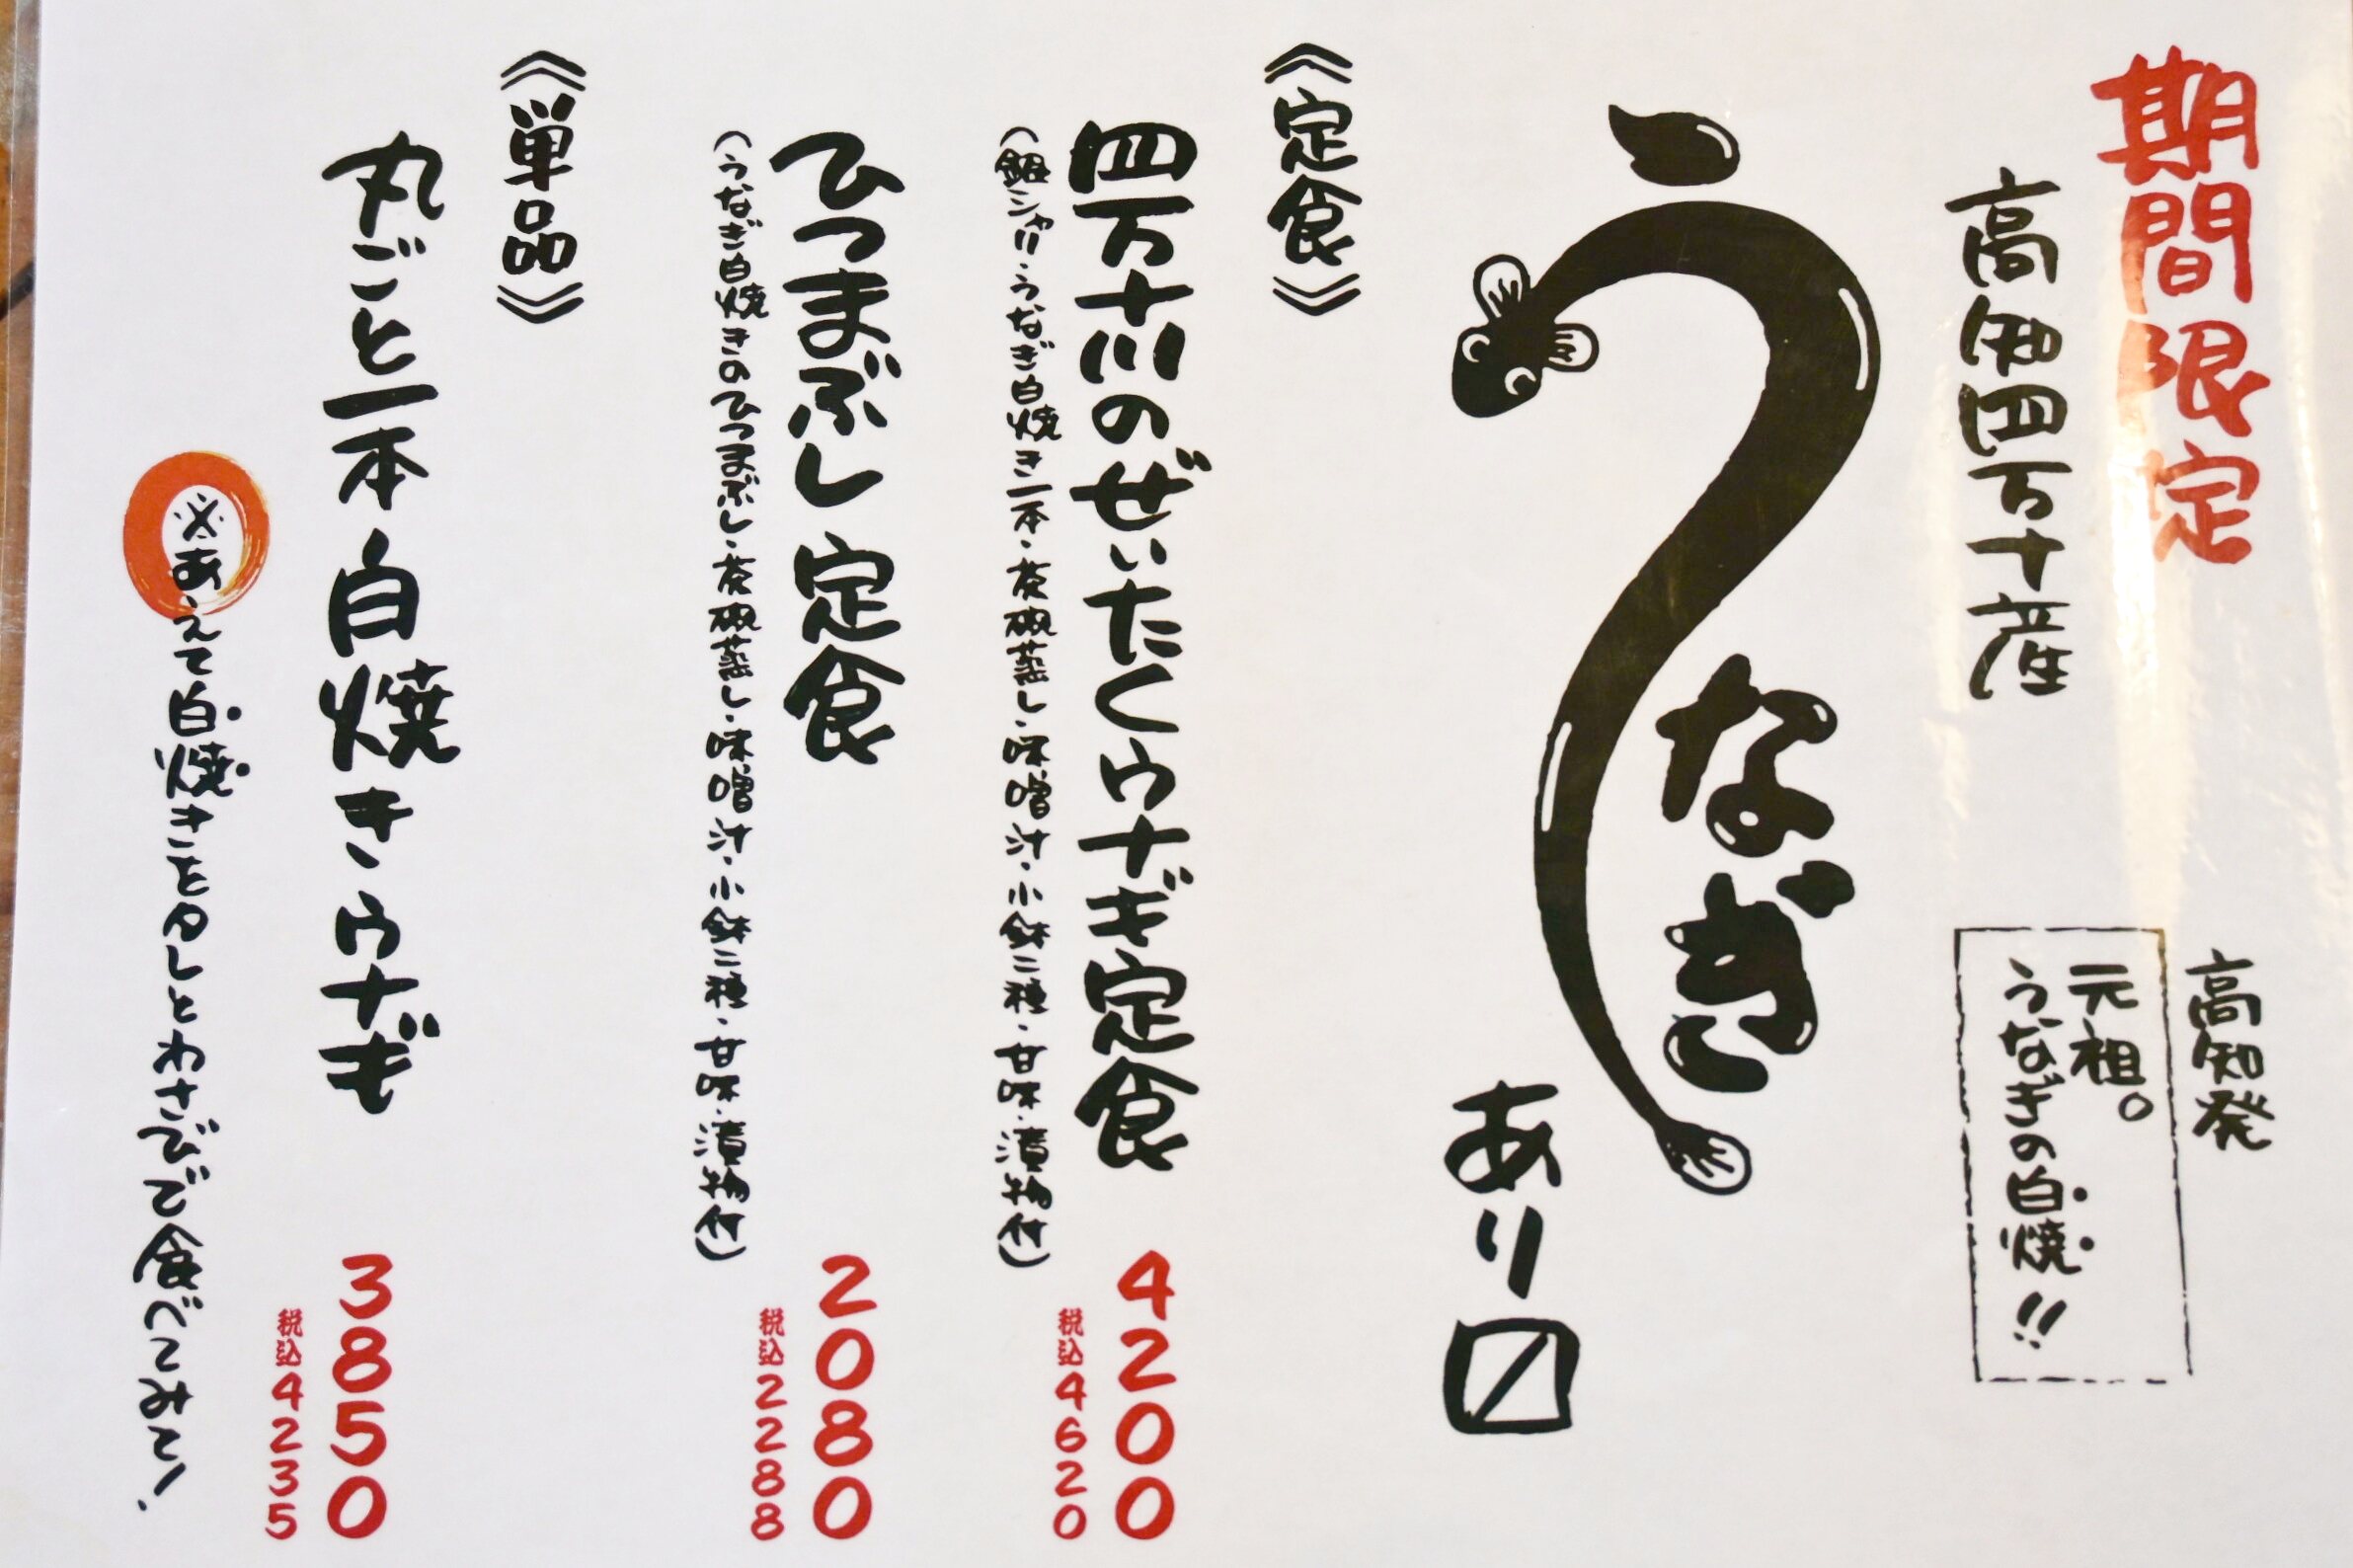 期間限定
高知四万十産
高知発
元祖。
うなぎの白焼!!
うなぎ
あり〼
《定食》
四万十川のぜいたくウナギ定食
(銀シャリ・うなぎ白焼き一本・茶椀蒸し・味噌汁・小鉢二種・甘味・漬物付)
4200
税込4620
ひつまぶし定食
(うなぎ白焼きのひつまぶし・茶椀蒸し・味噌汁・小鉢二種・甘味・漬物付)
2080
税込2288
《単品》
丸ごと一本白焼きウナギ
3850
税込4235
※あえて白焼きをタレとわさびで食べてみて!